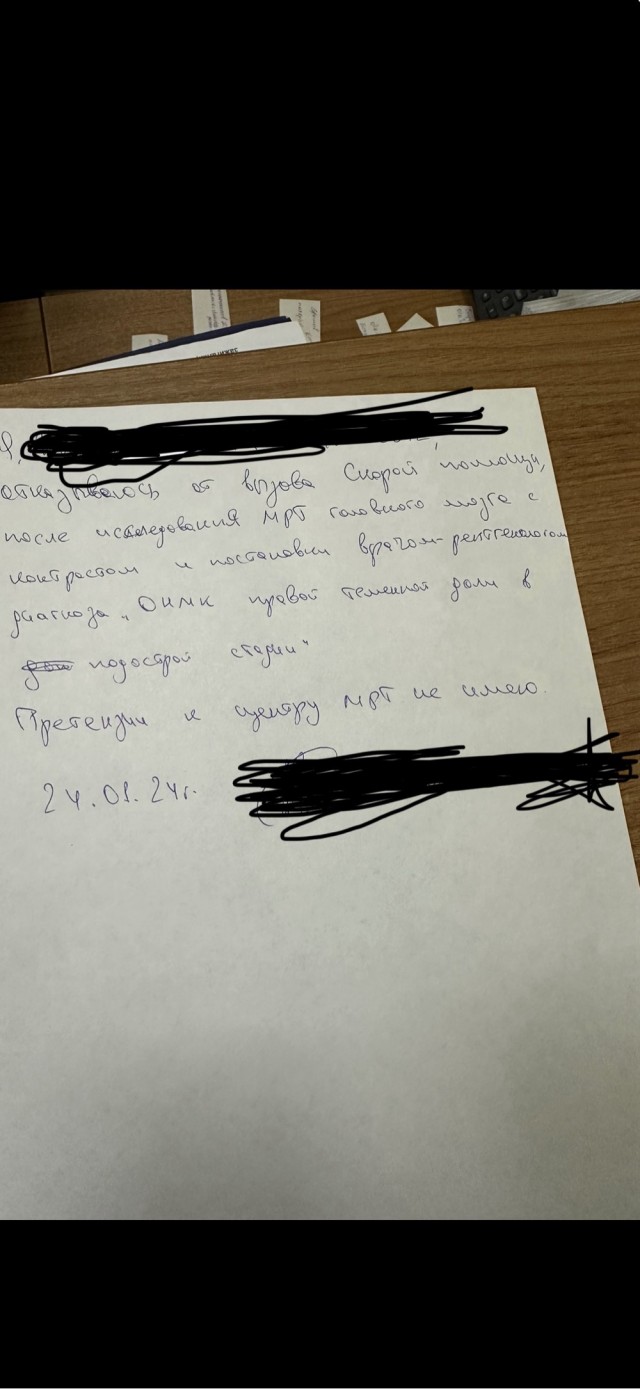 Я,
отказываюсь от вызова Скорой помощи,
после исследования МРТ головного мозга с
контрастом и постановки врачом-рентгенологом
диагноза „ОНМК правой теменной доли в
подострой стадии"
Претензии к центру МРТ не имею.
24.01.24г.